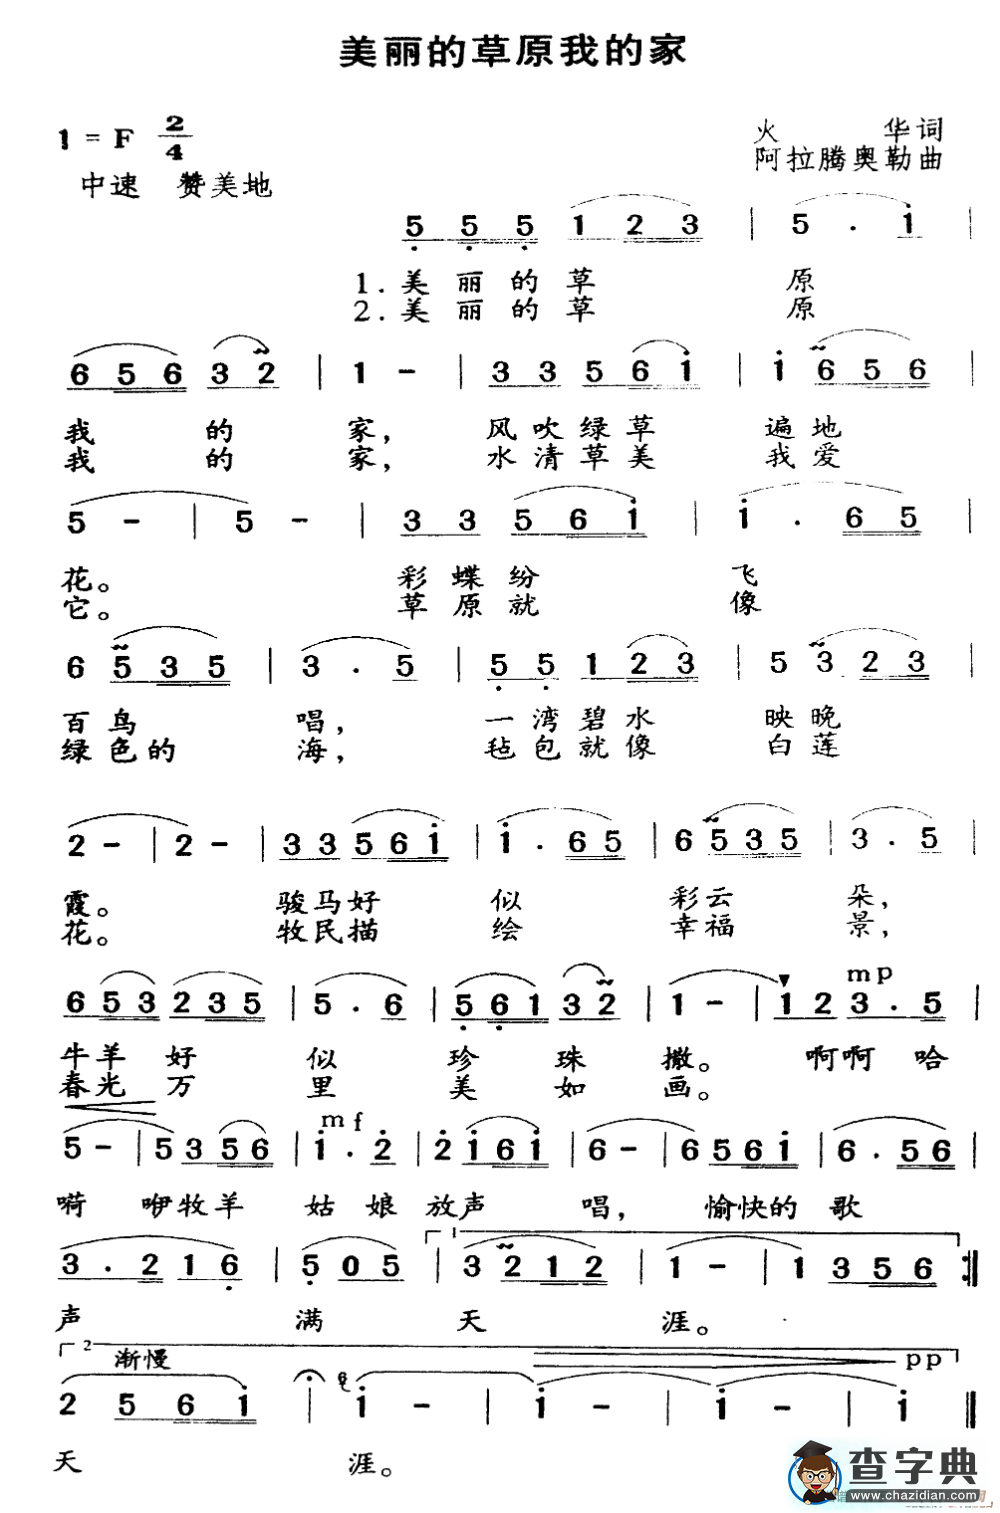 美丽的草原我的家
1 = F 2/4
火 华词
中速 赞美地 阿拉腾奥勒曲
5 5 5 1 2 3 | 5 . 1 |
1.美丽的草 原
2.美丽的草 原
6 5 6 3 2 | 1 - | 3 3 5 6 1 | 1 6 5 6 |
我 的 家, 风吹绿草 遍地
我 的 家, 水清草美 我爱
5 - | 5 - | 3 3 5 6 1 | 1 . 6 5 |
花。 彩蝶纷 飞
它。 草原就 像
6 5 3 5 | 3 . 5 | 5 5 1 2 3 | 5 3 2 3 |
百鸟 唱, 一湾碧水 映晚
绿色的 海, 毡包就像 白莲
2 - | 2 - | 3 3 5 6 1 | 1 . 6 5 | 6 5 3 5 | 3 . 5 |
霞。 骏马好 似 彩云 朵,
花。 牧民描 绘 幸福 景,
mp
6 5 3 2 3 5 | 5 . 6 | 5 6 1 3 2 | 1 - | 1 2 3 . 5 |
牛羊 好 似 珍 珠 撒。 啊啊 哈
春光 万 里 美 如 画。
mf
5 - | 5 3 5 6 | 1 . 2 | 2 1 6 1 | 6 - | 6 5 6 1 | 6 . 5 6 |
嗬 咿牧羊 姑 娘 放声 唱, 愉快的 歌
1
3 . 2 1 6 | 5 0 5 | 3 2 1 2 | 1 - | 1 3 5 6 :||
声 满 天 涯。
2 渐慢 pp
2 5 6 1 | 1 - | 1 - | 1 - | 1 ||
天 涯。
查字典
www.chazidian.com